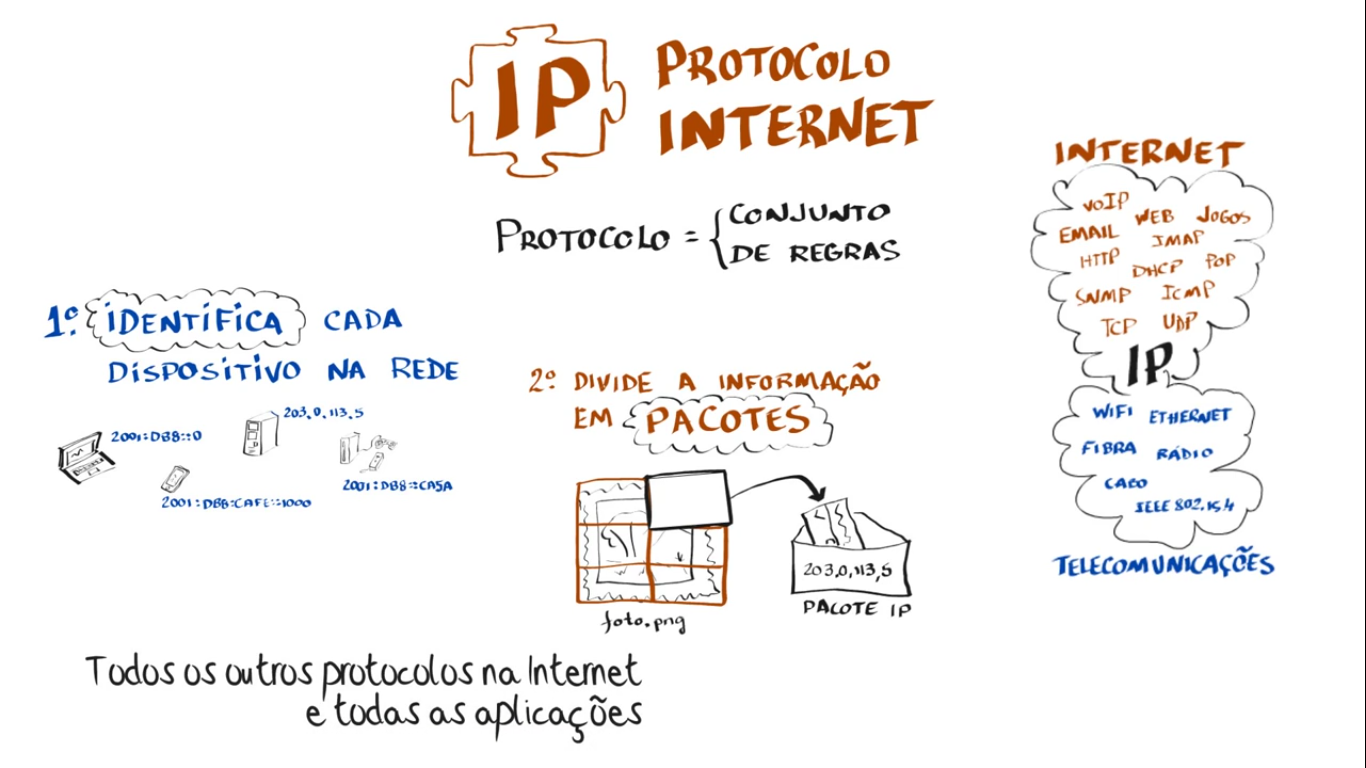 IP
PROTOCOLO
INTERNET
PROTOCOLO = { CONJUNTO
DE REGRAS
1º IDENTIFICA CADA
DISPOSITIVO NA REDE
203.0.113.5
2001:DB8::0
2001:DB8:CAFE::1000
2001:DB8::CA5A
2º DIVIDE A INFORMAÇÃO
EM PACOTES
203.0.113.5
foto.png
PACOTE IP
INTERNET
VOIP
WEB JOGOS
EMAIL IMAP
HTTP DHCP POP
SNMP ICMP
TCP UDP
IP
WIFI ETHERNET
FIBRA RÁDIO
CABO
IEEE 802.15.4
TELECOMUNICAÇÕES
Todos os outros protocolos na Internet
e todas as aplicações